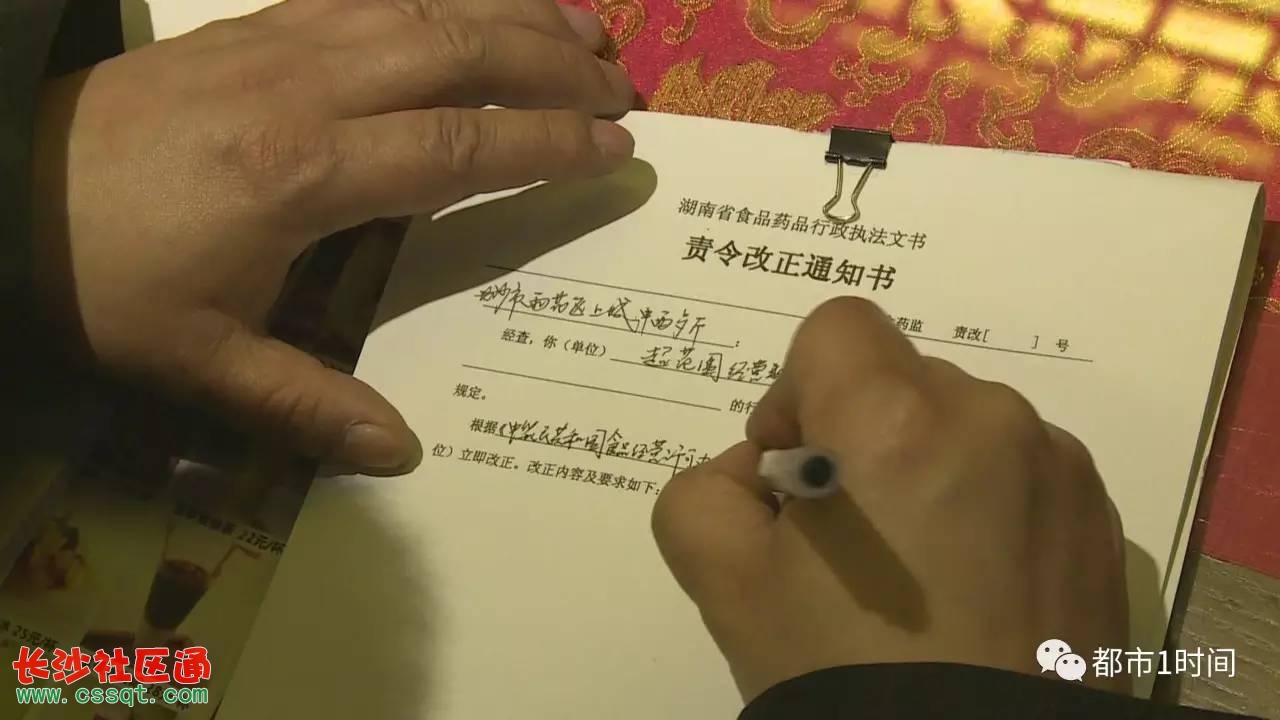 湖南省食品药品行政执法文书
责令改正通知书
药监 责改[ ] 号
长沙市雨花区上城中西夕厅：
经查，你（单位） 超范围经营
的行
规定。
根据《中华人民共和国食品经营许可
位）立即改正。改正内容及要求如下：
22元/杯
25元/杯
长沙社区通
www.cssqt.com
都市1时间